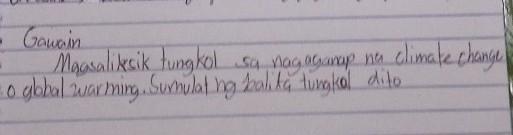 Gawain
Magsaliksik tungkol sa nagaganap na climate change
o global warming. Sumulat ng balita tungkol dito